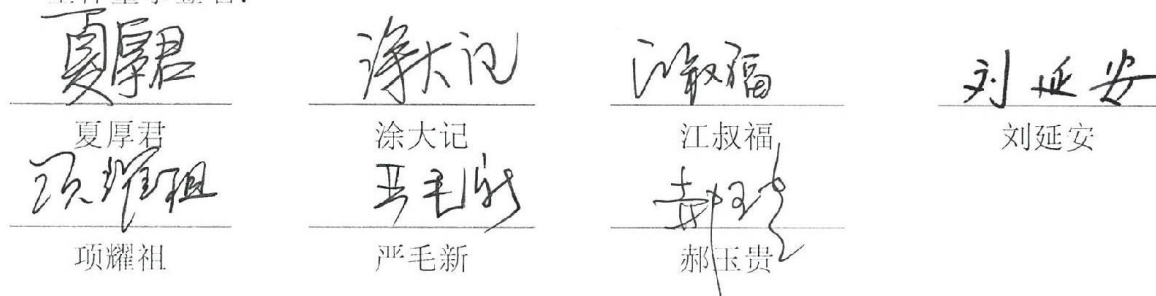 夏厚君 涂大记 江叔福 刘延安
夏厚君 涂大记 江叔福 刘延安
项耀祖 严毛新 郝玉贵
项耀祖 严毛新 郝玉贵